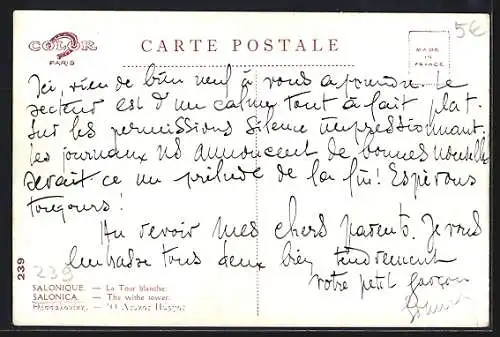 COLOR
PARIS
CARTE POSTALE
MADE IN FRANCE
5€
Ici, rien de bien neuf à vous apprendre. Le
secteur est d'un calme tout à fait plat.
Sur les permissions silence impressionnant.
Les journaux ns annoncent de bonnes nouvelles
serait ce un prélude de la fin! Espérons
toujours!
Au revoir mes chers parents. Je vous
embrasse tous deux bien tendrement
votre petit garçon
239
239
SALONIQUE. — La Tour blanche.
SALONICA. — The withe tower.